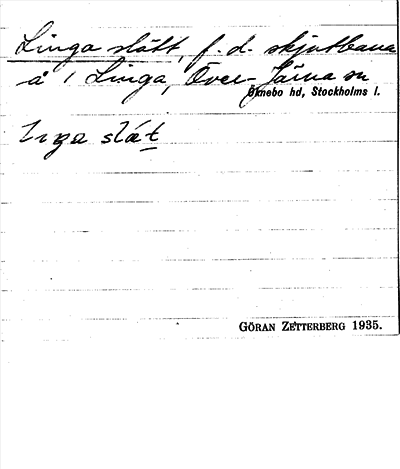 Linga slätt, f. d. skjutbana
å 1 Linga, Över-Järna sn
Öknebo hd, Stockholms l.
slät
GÖRAN ZETTERBERG 1935.